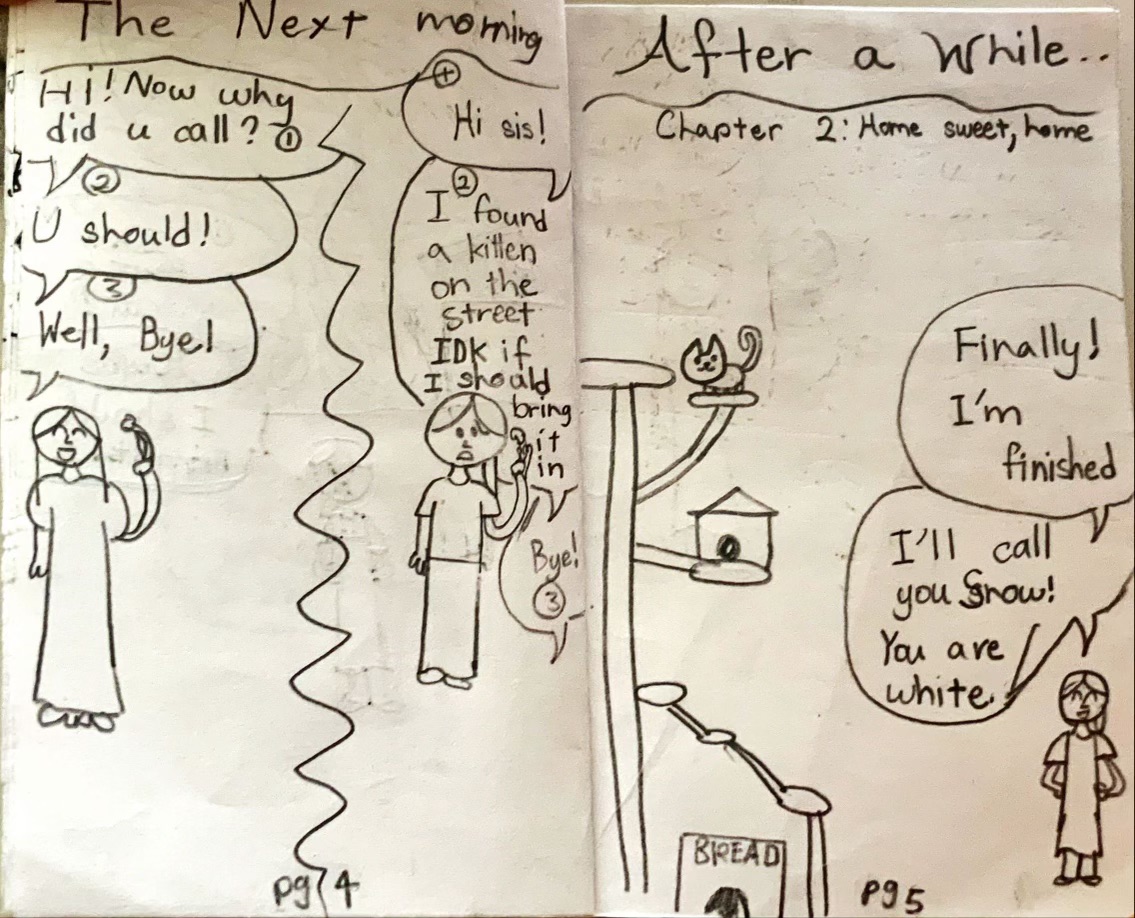 The Next morning
Hi! Now why
did u call? ①
②
U should!
③
Well, Bye!
+
Hi sis!
②
I found
a kitten
on the
street
IDK if
I should
bring
it
in
Bye!
③
pg 4
After a While..
Chapter 2: Home sweet, home
Finally!
I'm
finished
I'll call
you Snow!
You are
white.
BREAD
pg 5